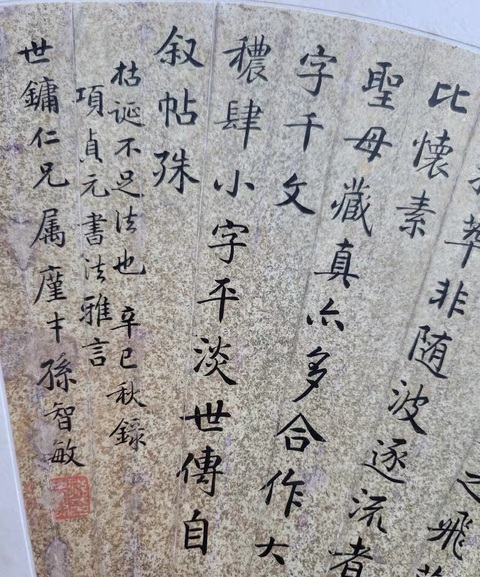 之飛
萃非随波逐流者
比懷素
聖母藏真亦多合作大
字千文
穠肆小字平淡世傳自
叙帖殊
枯誕不足法也 辛巳秋錄
項貞元書法雅言
世鏞仁兄属 廑 孫智敏